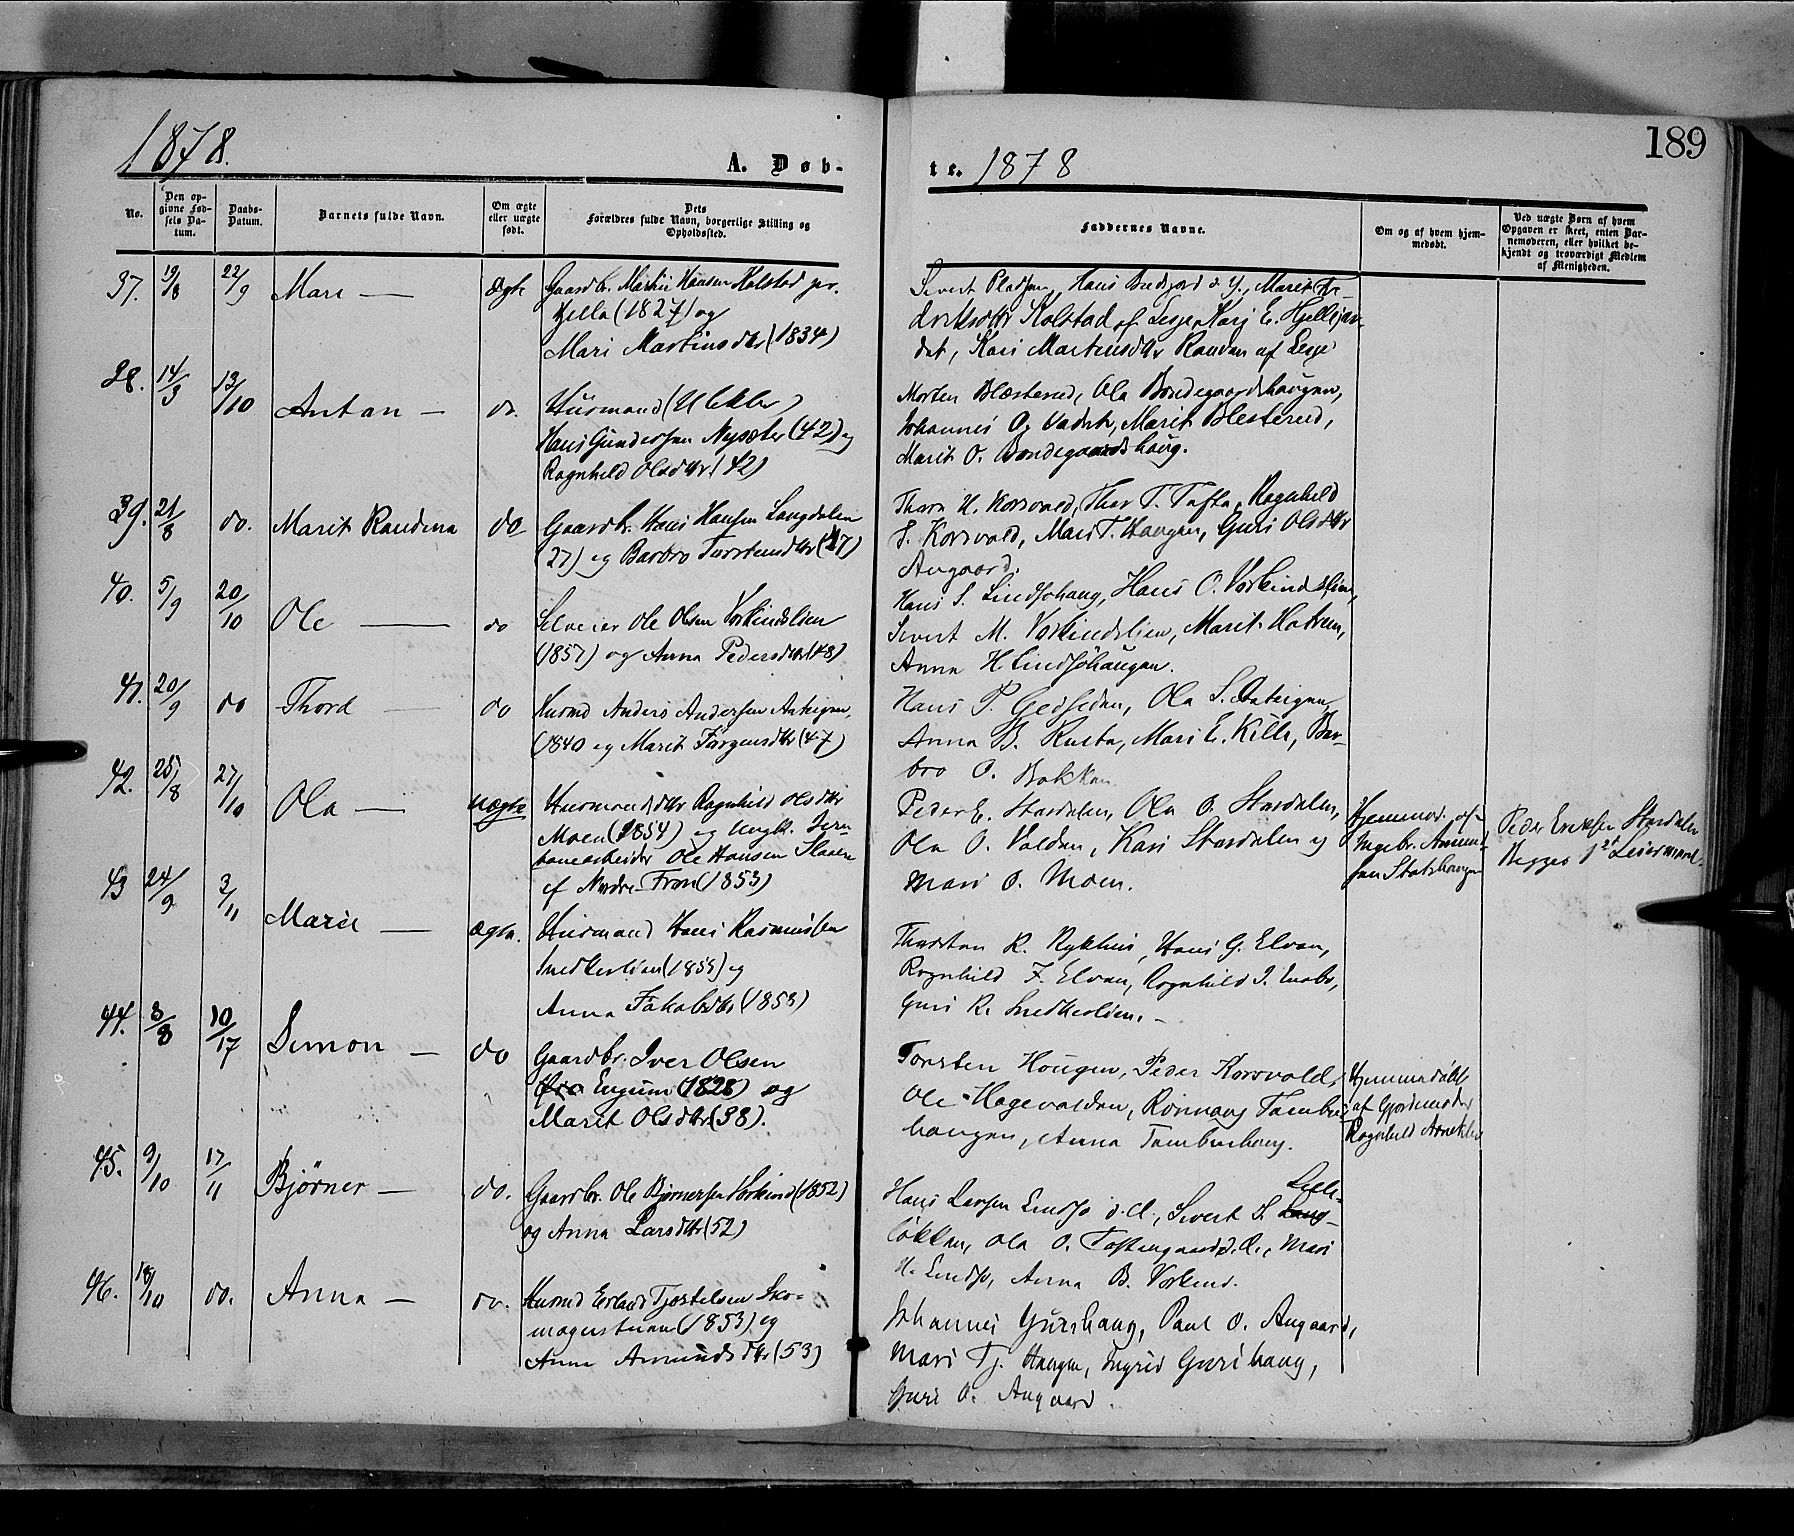 1878.
A. Døb-
te. 1878
189
No.
Den op-
givne Fød-
sels Da-
tum.
Daabs-
Datum.
Barnets fulde Navn.
Om ægte
eller uægte
født.
Dets
Forældres fulde Navn, borgerlige Stilling og
Opholdssted.
Faddernes Navne.
Om og af hvem hjem-
medøbt.
Ved uægte Børn af hvem
Opgaven er skeet, enten Bar-
nemoderen, eller hvilket be-
kjendt og troværdigt Medlem
af Menigheden.
37. 19/8 22/9 Mari — ægte
Gaardbr. Martin Hansen Kolstad
(1827) og
Mari Martinsdtr (1834)
Sivert Pladsen, Hans d. y., Marit
Kolstad af Lesje, Kari E.
dat, Kari Martinsdtr Randen af Lesje
38. 14/9 13/10 Anton — do.
Husmand
Hans Gundersen Nysæter (42) og
Ragnhild Olsdtr (42)
Morten Blæsterud, Ola Bondegaardshaugen,
Johannes O. Marit Blesterud,
Marit O. Bondegaardshaug.
39. 21/8 do. Marit Randina do
Gaardbr. Hans Hansen Langdalen
(27) og Barbro Torstensdtr (47)
Thora H. Korsvold, Thor T. Tofte, Ragnhild
S. Korsvold, Mari T. Haugen, Guri Olsdtr
Angaard.
40. 5/9 20/10 Ole — do
Selveier Ole Olsen Vorkinslien
(1857) og Anna Pedersdtr (48)
Hans S. Lindsøhaug, Hans O. Vorkindslien,
Sivert M. Vorkindslien, Marit Hatrem,
Anna H. Lindsøhaugen.
41. 20/9 do Thord — do
Husmd Anders Andersen
(1840 og Marit Jørgensdtr (47)
Hans P. Ola S.
Anna B. Rusta, Mari E. Kille, Bar-
bro O. Bakken
42. 25/8 27/10 Ola — uægte
Husmandsdtr Ragnhild Olsdtr
Moen (1854) og Ungk. Jern-
banearbeider Ole Hansen
af Nordre-Fron (1853)
Peder E. Stordalen, Ola O. Stordalen,
Ola O. Volden, Kari Stordalen og
Mari O. Moen.
Hjemmed. af
Ingebr. Amund-
sen
Peder Eriksen Stordalen
Begges 1ste Leiermaal.
43 24/9 3/11 Marie — ægte.
Husmand Hans Rasmussen
Snedkerlien (1855) og
Anna Jakobsdtr (1853)
Thorsten R. Nyhus, Hans G. Elven,
Ragnhild F. Elven, Ragnhild I.
Guri R. Snedkerlien. –
44. 3/8 10/17 Simon — do
Gaardbr. Iver Olsen
Engum (1828) og
Marit Olsdtr (38).
Torsten Hougen, Peder Korsvold,
Ole Hagevolden, Rønnaug
haugen, Anna
Hjemmedøbt
af Gjordemoder
Ragnhild
45. 9/10 17/11 Bjørner — do.
Gaardbr. Ole Bjørnersen Vorkind (1852)
og Anna Larsdtr (52)
Hans Larsen Lindsø d. æ., Sivert S. Lille-
løkken, Ola O. Mari
H. Lindsø, Anna B. Vorkind.
46. 18/10 do. Anna — do.
Husmd Erland Tjostelsen Sko-
magerstuen (1853) og
Anne Amundsdtr (53)
Johannes Gurihaug, Paul O. Angaard,
Mari Tj. Haugen, Ingrid Gurihaug,
Guri O. Angaard.